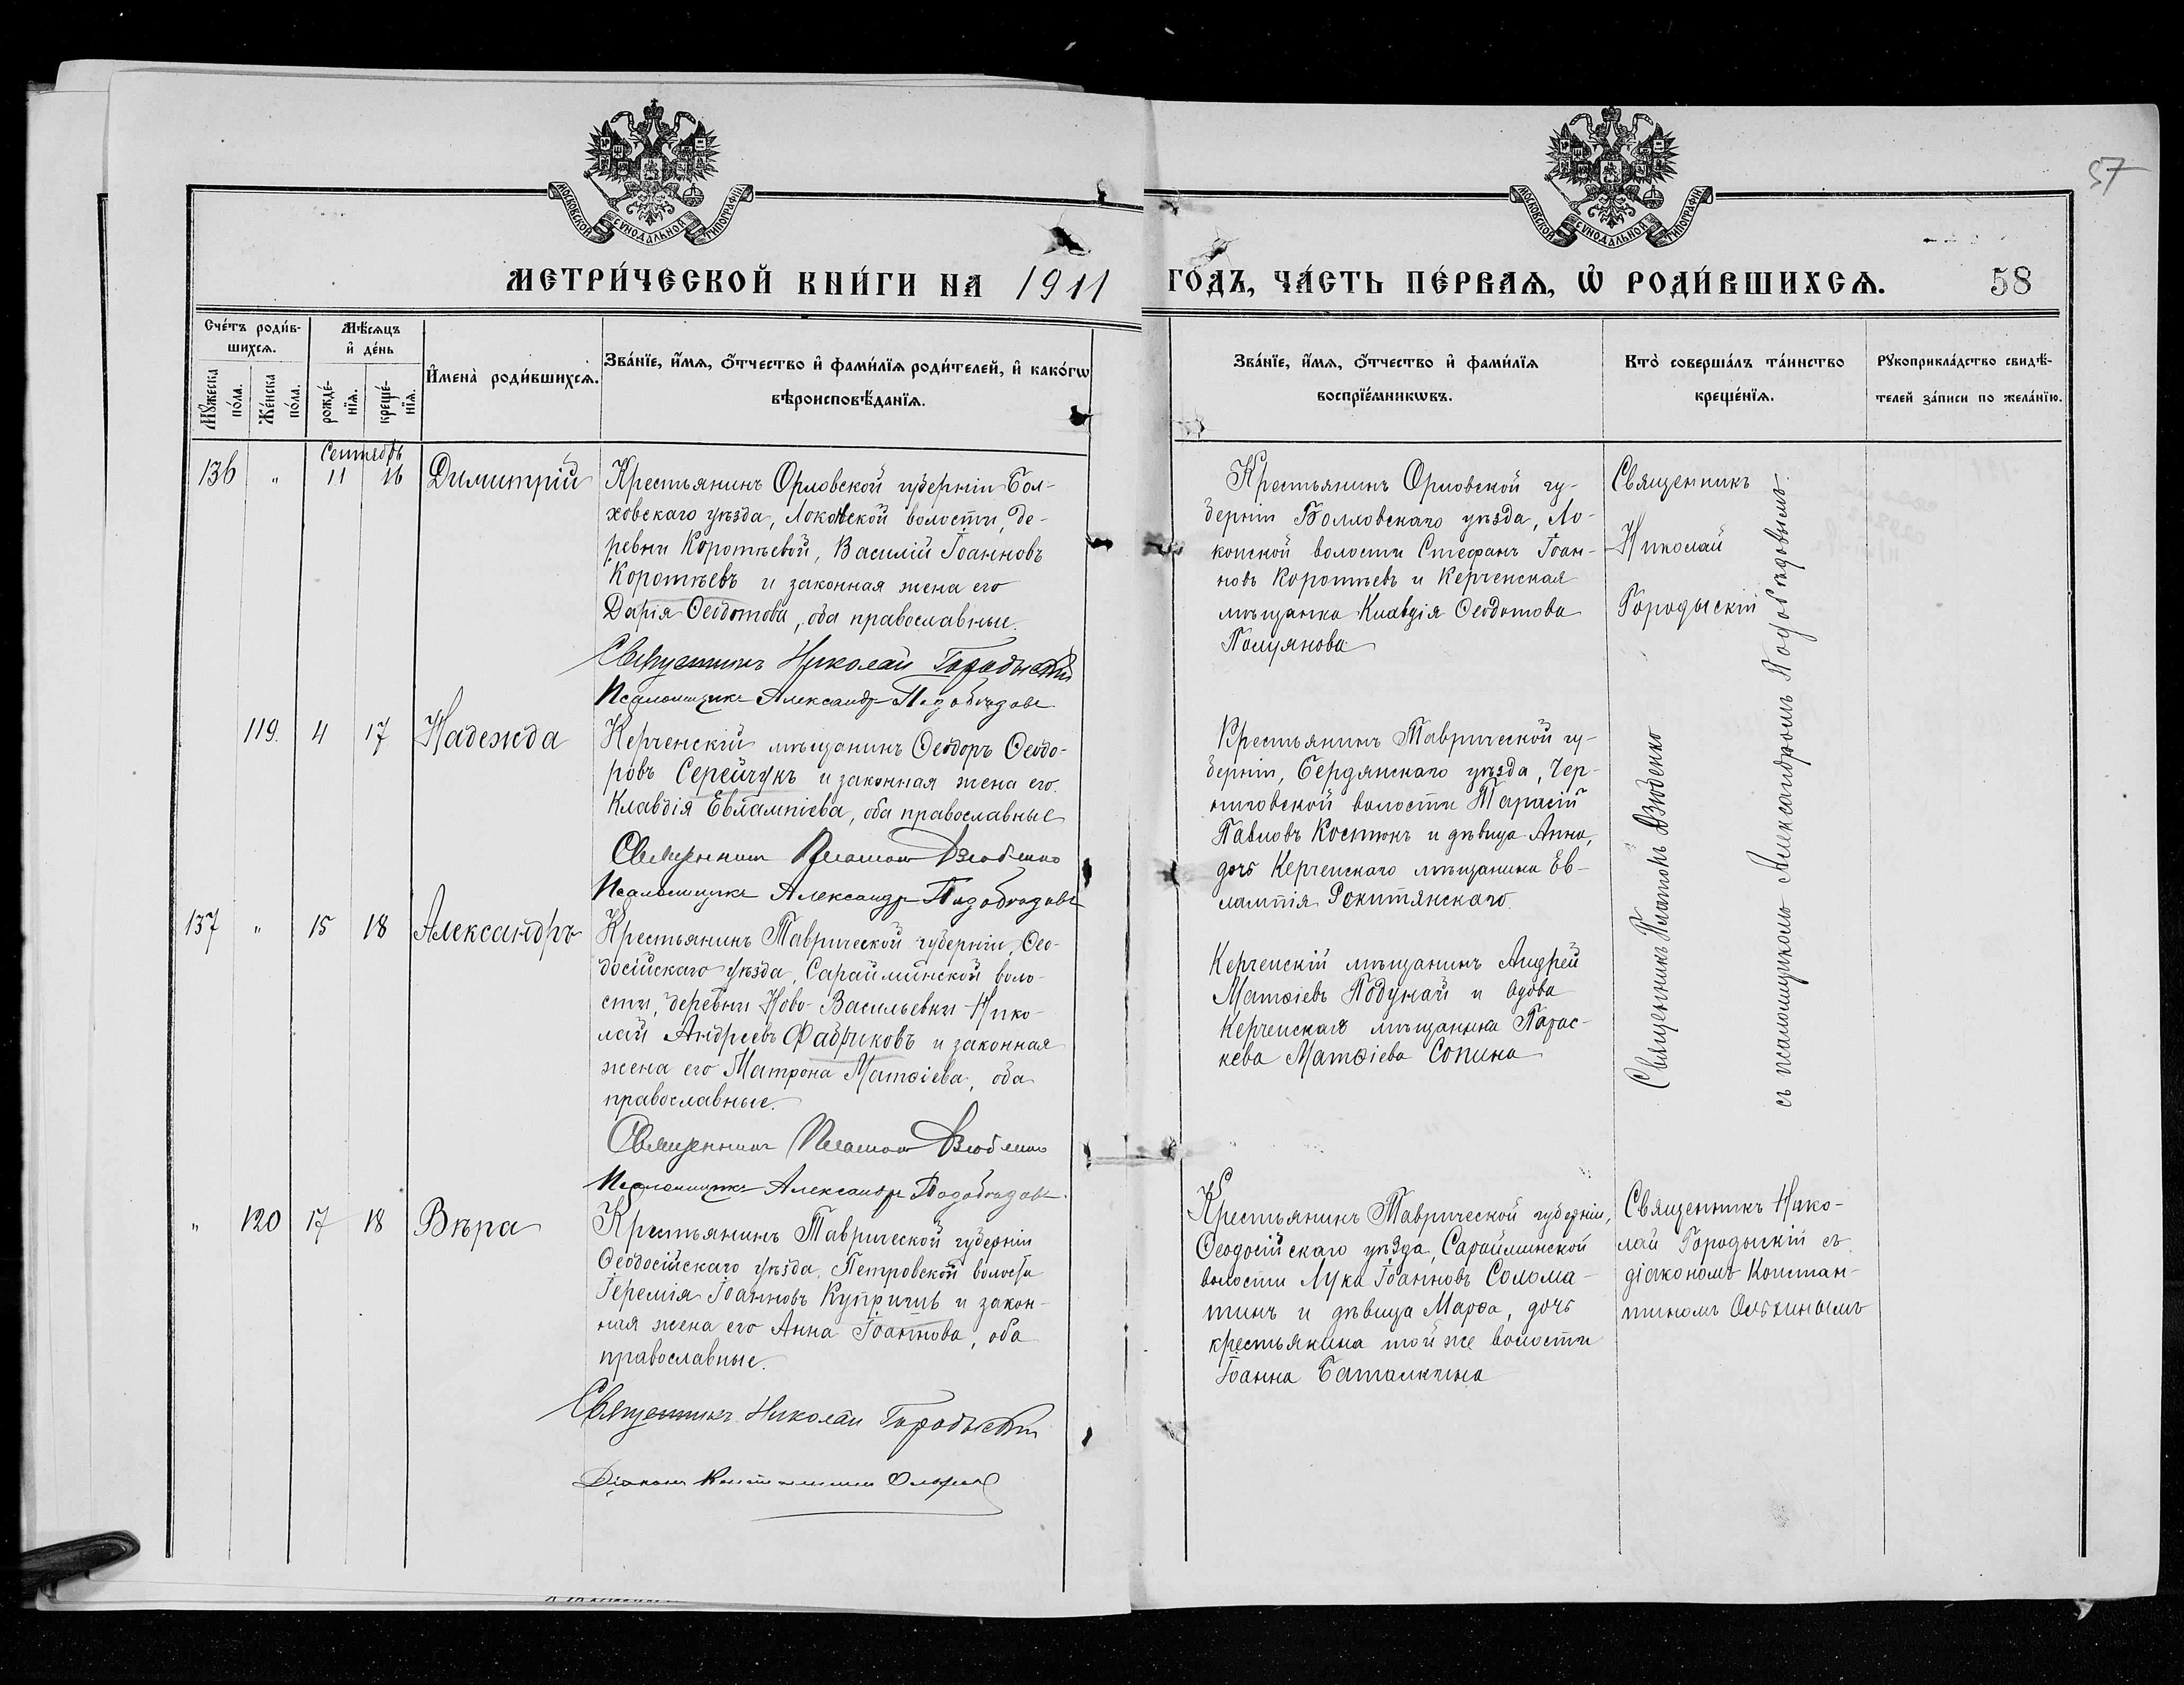 57
МОСКОВСКОЙ СѴНОДАЛЬНОЙ ТИПОГРАФІИ
МОСКОВСКОЙ СѴНОДАЛЬНОЙ ТИПОГРАФІИ
МЕТРИ́ЧЕСКОЙ КНИ́ГИ НА 1911 ГО́ДЪ, ЧА́СТЬ ПЕ́РВАѦ, Ѽ РОДИ́ВШИХСѦ. 58
Сче́тъ роди́в-
шихсѧ.
Мꙋжеска
по́ла.
Же́нска
по́ла.
Мѣ́сѧцъ
и҆ де́нь
рожде́-
нїѧ.
креще́-
нїѧ.
И҆мена̀ роди́вшихсѧ.
Зва́нїе, и҆́мѧ, о҆́тчество и҆ фами́лїѧ роди́телей, и҆ како́гѡ
вѣроисповѣ́данїѧ.
Зва́нїе, и҆́мѧ, о҆́тчество и҆ фами́лїѧ
воспрїе́мникѡвъ.
Кто̀ соверша́лъ та́инство
креще́нїѧ.
Рꙋкоприкла́дство свидѣ́-
телей за́писи по жела́нїю.
Сентябрь
136 " 11 16 Димитрій
Крестьянинъ Орловской губерніи Бол-
ховскаго уѣзда, Локонской волости, де-
ревни Коротѣевой, Василій Іоанновъ
Коротѣевъ и законная жена его
Дарія Ѳеодотова, оба православные.
Священникъ Николай Городыскій
Псаломщикъ Александръ Подобѣдовъ
Крестьянинъ Орловской гу-
берніи Болховскаго уѣзда, Ло-
конской волости Стефанъ Іоан-
новъ Коротѣевъ и Керченская
мѣщанка Клавдія Ѳеодотова
Полуянова
Священникъ
Николай
Городыскій
119. 4 17 Надежда
Керченскій мѣщанинъ Ѳеодоръ Ѳеодо-
ровъ Серейчукъ и законная жена его
Клавдія Евлампіева, оба православные
Священникъ Платонъ Дзюбенко
Псаломщикъ Александръ Подобѣдовъ
Крестьянинъ Таврической гу-
берніи, Бердянскаго уѣзда, Чер-
ниговской волости Тарасій
Павловъ Костюкъ и дѣвица Анна,
дочь Керченскаго мѣщанина Ев-
лампія Рокитянскаго.
137 " 15 18 Александръ
Крестьянинъ Таврической губерніи, Ѳео-
досійскаго уѣзда, Сарайминской воло-
сти, деревни Ново-Васильевки Нико-
лай Андреевъ Фабриковъ и законная
жена его Матрона Матѳіева, оба
православные.
Священникъ Платонъ Дзюбенко
Псаломщикъ Александръ Подобѣдовъ.
Керченскій мѣщанинъ Андрей
Матѳіевъ Подунай и вдова
Керченскаго мѣщанина Парас-
кева Матѳіева Сопина
Священникъ Платонъ Дзюбенко
съ псаломщикомъ Александромъ Подобѣдовымъ.
" 120 17 18 Вѣра
Крестьянинъ Таврической губерніи
Ѳеодосійскаго уѣзда, Петровской волости
Іеремія Іоанновъ Купричъ и закон-
ная жена его Анна Іоаннова, оба
православные.
Священникъ Николай Городыскій
Діаконъ Константинъ
Крестьянинъ Таврической губерніи,
Ѳеодосійскаго уѣзда, Сарайминской
волости Лука Іоанновъ Солома-
тинъ и дѣвица Марѳа, дочь
крестьянина той же волости
Іоанна Баталкина
Священникъ Нико-
лай Городыскій съ
діакономъ Констан-
тиномъ